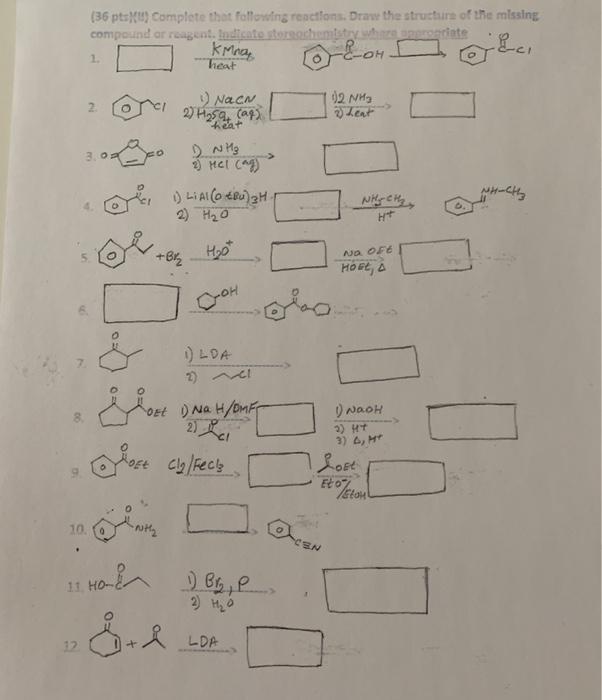 (36 pts)(!!) Complete that following reactions. Draw the structure of the missing
compound or reagent. Indicate stereochemistry where appropriate
1. KMnO4 heat C-OH O C-Cl O
2. Cl 1) NaCN 2) H2SO4 (aq) heat 1) 2 NH3 2) heat
3. O O O 1) NH3 2) HCl (aq)
4. O Cl 1) LiAl(OtBu)3H 2) H2O NH2CH3 H+ NH-CH3
5. O +Br2 H3O+ Na OEt HOEt, Δ
6. OH O O
7. O 1) LDA 2) Cl
8. O O OEt 1) Na H/DMF 2) O Cl 1) NaOH 2) H+ 3) Δ, H+
9. O OEt Cl2/FeCl3 O OEt EtO-/EtOH
10. O NH2 C≡N
11. HO-C O 1) Br2, P 2) H2O
12. O + O LDA